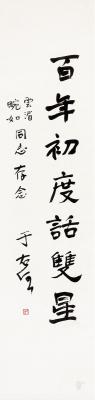 百年初度話雙星
雲濱
畹如
同志存念
于右任